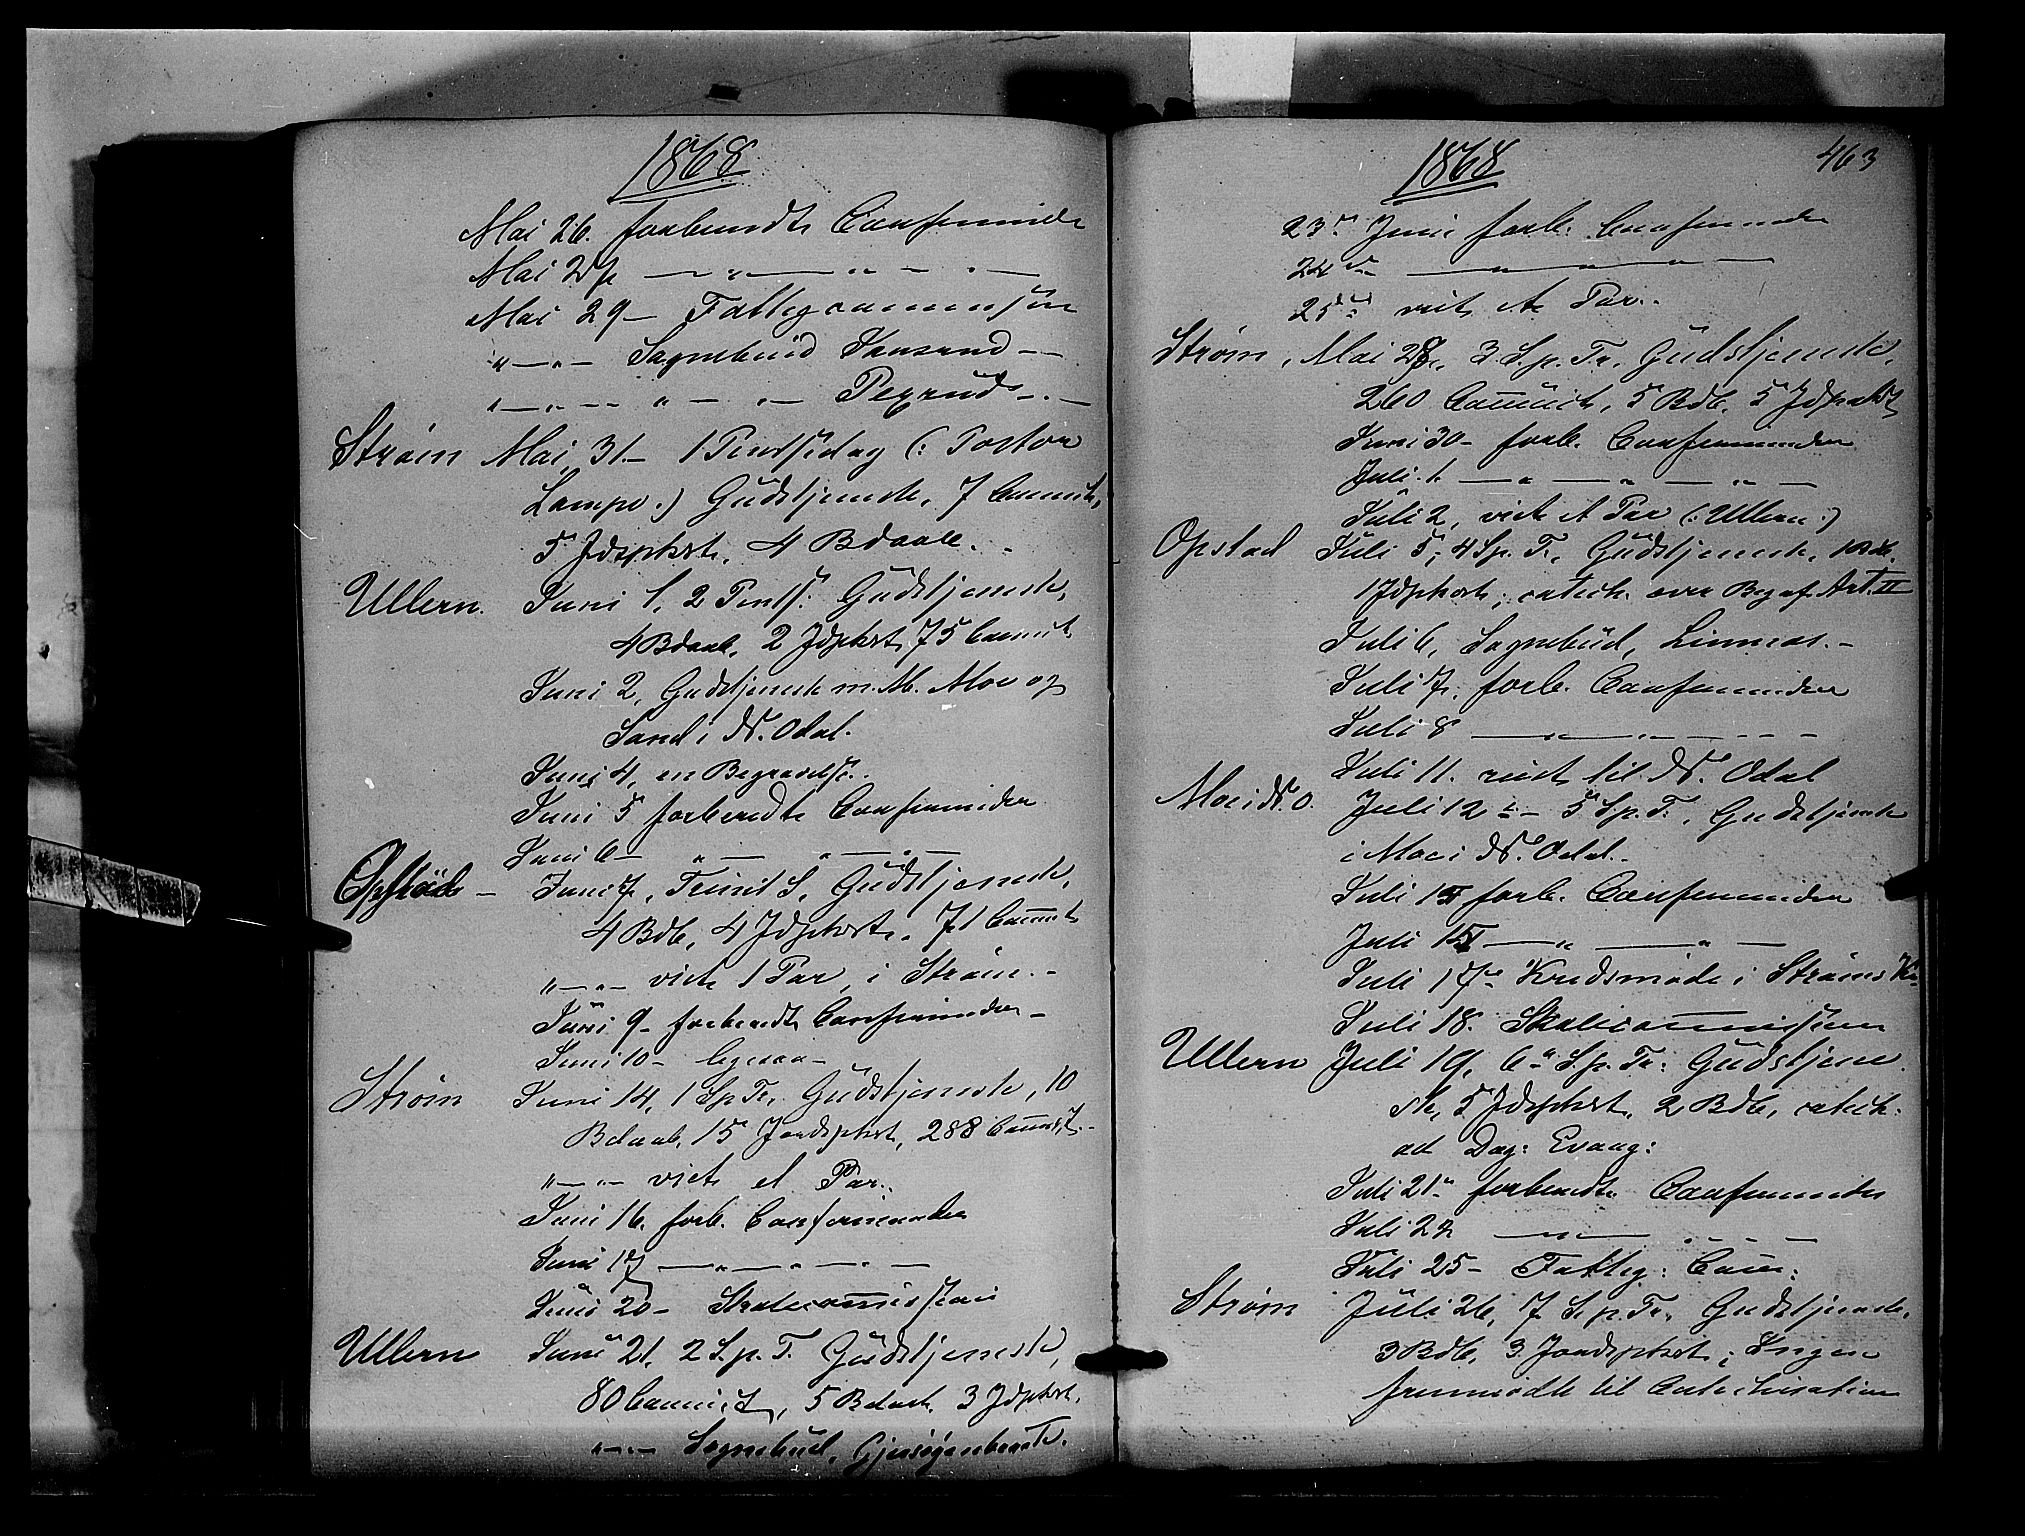 1868
Mai 26. forberedte Confirmander
Mai 27 — „ — „ — „ —
Mai 29 — Fattigcommission
„ — „ — Sognebud
„ — „ — „ — „ —
Strøm Mai 31. — 1 Pintsedag (: Pastor
Lampe :) Gudstjeneste, 7 Commit,
5 Jdspkst, 4 Bdaab. —
Ullern. Juni 1, 2 Pints: Gudstjeneste,
4 Bdaab, 2 Jdpkst, 75 Commit.
Juni 2, Gudstjeneste m. M. Moe og
Sand i N. Odal.
Juni 4, en Begravelse.
Juni 5 forberedte Confirmander
Juni 6 — „ — „ — „ —
Opstad — Juni 7, Trinit S, Gudstjeneste,
4 Bdb, 4 Jdspkst. 71 Commit
„ — „ — viet 1 Par i Strøm. —
Juni 9 — forberedte Confirmander —
Juni 10 — ligesaa —
Strøm Juni 14, 1 S. p. Tr. Gudstjeneste, 10
Bdaab, 15 Jordspkst, 288 Commit. —
„ — „ — viet et Par.
Juni 16. forb. Confirmander
Juni 17 — „ — „ — „ —
Juni 20 — Skolecommission
Ullern Juni 21, 2 S. p. T. Gudstjeneste,
80 Commit, 5 Bdaab. 3 Jdpkst.
„ — „ — Sognebud,
1868 463
23de Juni forb. Confirmander
24de — „ — „ — „ —
25de viet et Par.
Strøm, Mai 28, 3 S. p. Tr. Gudstjeneste,
260 Commit, 5 Bdb. 5 Jdspkst
Juni 30 — forb. Confirmander
Juli 1. — „ — „ — „ —
Juli 2, viet et Par (: Ullern :)
Opstad Juli 5, 4 S. p. Tr. Gudstjeneste, 1 Bdb.
1 Jdpkst, catech. over Beg. af Art. II
Juli 6, Sognebud, Linnæs. —
Juli 7, forb. Confirmander
Juli 8 — „ — „ — — —
Juli 11. reist til N. Odal
Moe i N. O. Juli 12te — 5 S. p. Tr. Gudstjeneste
i Moe i N. Odal. —
Juli 14 forb. Confirmander
Juli 15 — „ — „ —
Juli 17de Kredsmøde i Strøms K.
Juli 18. Skolecommission
Ullern Juli 19, 6te S. p. Tr. Gudstjene
ste, 5 Jdspkst. 2 Bdb, catech.
ad Dag: Evang:
Juli 21de forberedte Confirmander
Juli 22 — „ — „ — „ —
Juli 25 — Fattig: Com:
Strøm Juli 26, 7 S. p. Tr. Gudstjeneste,
3 Bdb, 3 Jordspkst; Ingen
fremmødte til Catechisation